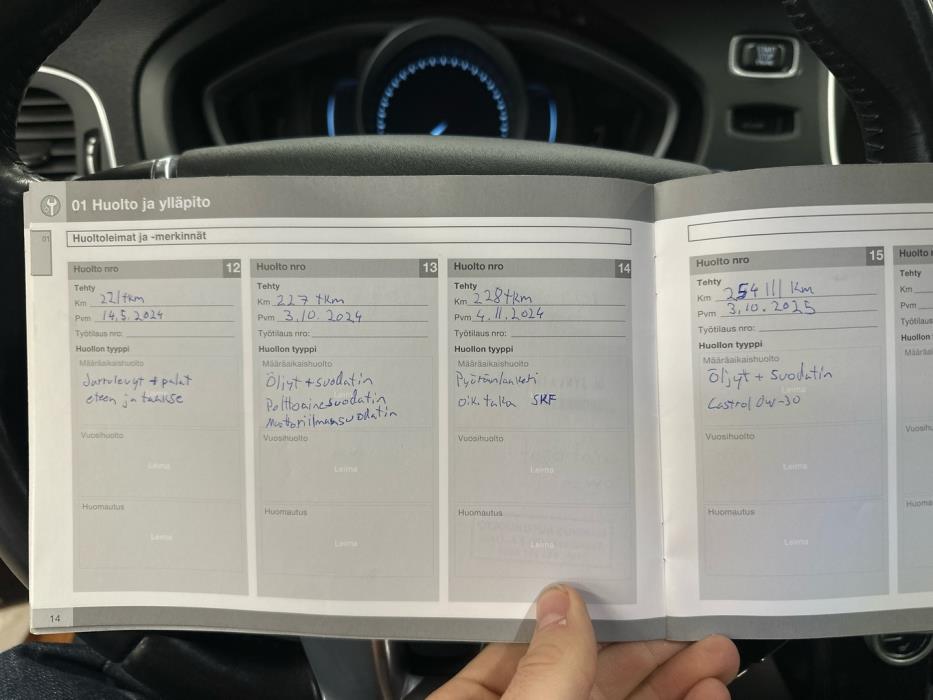 START
01 Huolto ja ylläpito
01
Huoltoleimat ja -merkinnät
Huolto nro 12
Tehty
Km 221tkm
Pvm 14.5.2024
Työtilaus nro:
Huollon tyyppi
Määräaikaishuolto
Jarrulevyt + palat
eteen ja taakse
Vuosihuolto
Leima
Huomautus
Leima
Huolto nro 13
Tehty
Km 227 tkm
Pvm 3.10.2024
Työtilaus nro:
Huollon tyyppi
Määräaikaishuolto
Öljyt + suodatin
Polttoainesuodatin
Moottoriilmansuodatin
Vuosihuolto
Leima
Huomautus
Leima
Huolto nro 14
Tehty
Km 228tkm
Pvm 4.11.2024
Työtilaus nro:
Huollon tyyppi
Määräaikaishuolto
Pyöränlaakeri
oik. taka SKF
Vuosihuolto
Leima
Huomautus
Leima
14
Huolto nro 15
Tehty
Km 254 111 km
Pvm 3.10.2025
Työtilaus nro:
Huollon tyyppi
Määräaikaishuolto
Öljyt + suodatin
Castrol 0w-30
Vuosihuolto
Leima
Huomautus
Leima
Huolto
Tehty
Km
Pvm